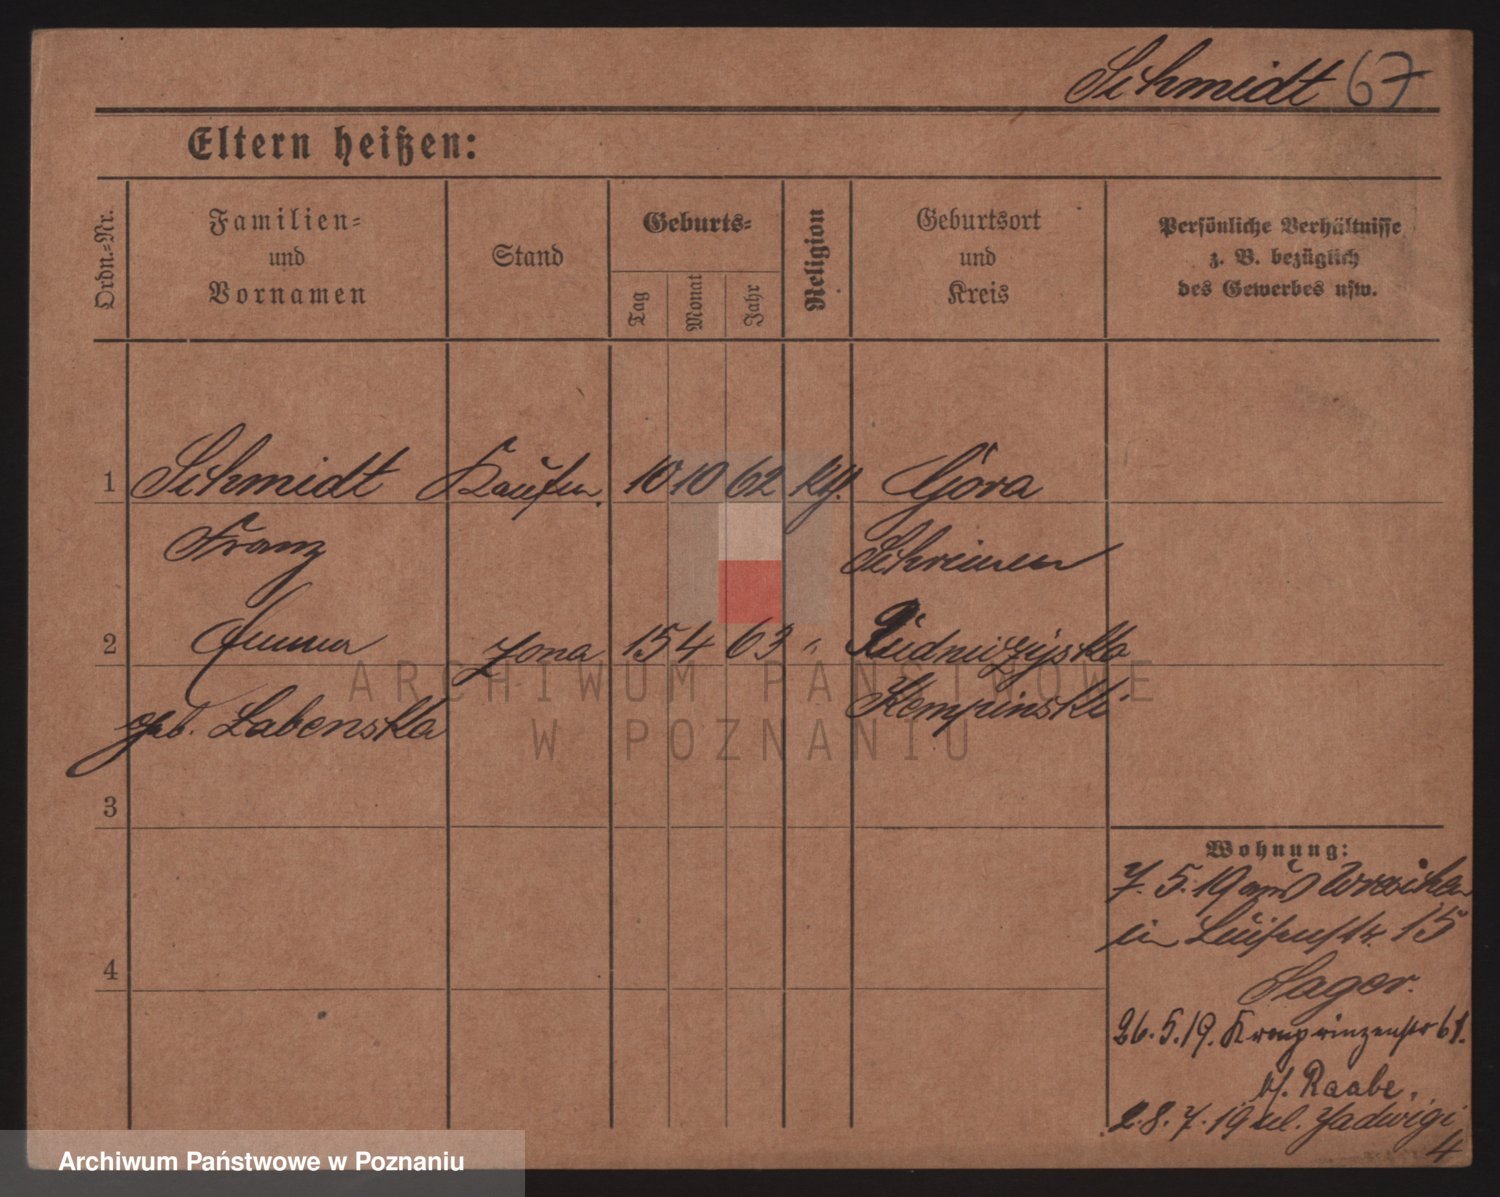 Schmidt 67
Eltern heißen:
Ordn.-Nr.
Familien-
und
Vornamen
Stand
Geburts-
Tag
Monat
Jahr
Religion
Geburtsort
und
Kreis
Persönliche Verhältnisse
z. B. bezüglich
des Gewerbes usw.
1 Schmidt Kaufm. 10 10 62 Góra
Franz Schrimm
2 Emma żona 15 4 63 "
geb. Labenska Kempinski
3
4
Wohnung:
7. 5. 19 aus
in Luisenstr. 15
Sager.
26. 5. 19. Kronprinzenstr 61.
b/. Raabe.
28. 7. 19 ul. Jadwigi
4
ARCHIWUM PAŃSTWOWE
W POZNANIU
Archiwum Państwowe w Poznaniu